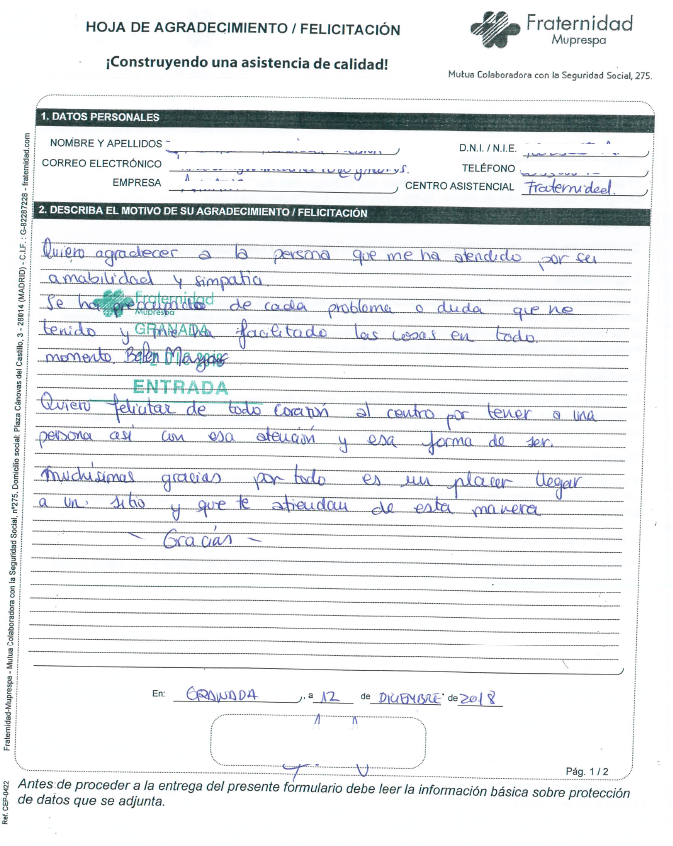 HOJA DE AGRADECIMIENTO / FELICITACIÓN
¡Construyendo una asistencia de calidad!
Fraternidad
Muprespa
Mutua Colaboradora con la Seguridad Social, 275.
1. DATOS PERSONALES
NOMBRE Y APELLIDOS
D.N.I. / N.I.E.
CORREO ELECTRÓNICO
TELÉFONO
EMPRESA
CENTRO ASISTENCIAL Fraternidad.
2. DESCRIBA EL MOTIVO DE SU AGRADECIMIENTO / FELICITACIÓN
Quiero agradecer a la persona que me ha atendido por su
amabilidad y simpatia.
Se ha de cada problema o duda que he
tenido y me ha facilitado las cosas en todo
momento. Belén
Fraternidad
Muprespa
GRANADA
ENTRADA
Quiero felicitar de todo corazón al centro por tener a una
persona así con esa atención y esa forma de ser.
Muchísimas gracias por todo es un placer llegar
a un sitio y que te atiendan de esta manera
- Gracias -
En: GRANADA, a 12 de DICIEMBRE de 2018
Pág. 1 / 2
Antes de proceder a la entrega del presente formulario debe leer la información básica sobre protección
de datos que se adjunta.
Fraternidad-Muprespa - Mutua Colaboradora con la Seguridad Social, nº275, Domicilio social: Plaza Cánovas del Castillo, 3 - 28014 (MADRID) - C.I.F.: G-82287228 - fraternidad.com
Ref. CEP-0422